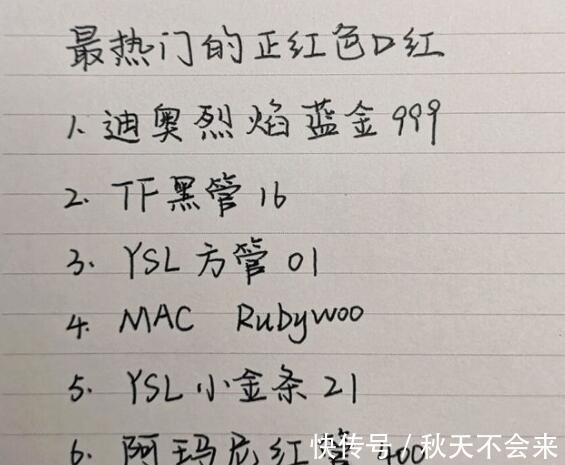 最热门的正红色口红
1. 迪奥烈焰蓝金999
2. TF黑管16
3. YSL方管01
4. MAC Rubywoo
5. YSL小金条21
6. 阿玛尼红管400
快传号/秋天不会来